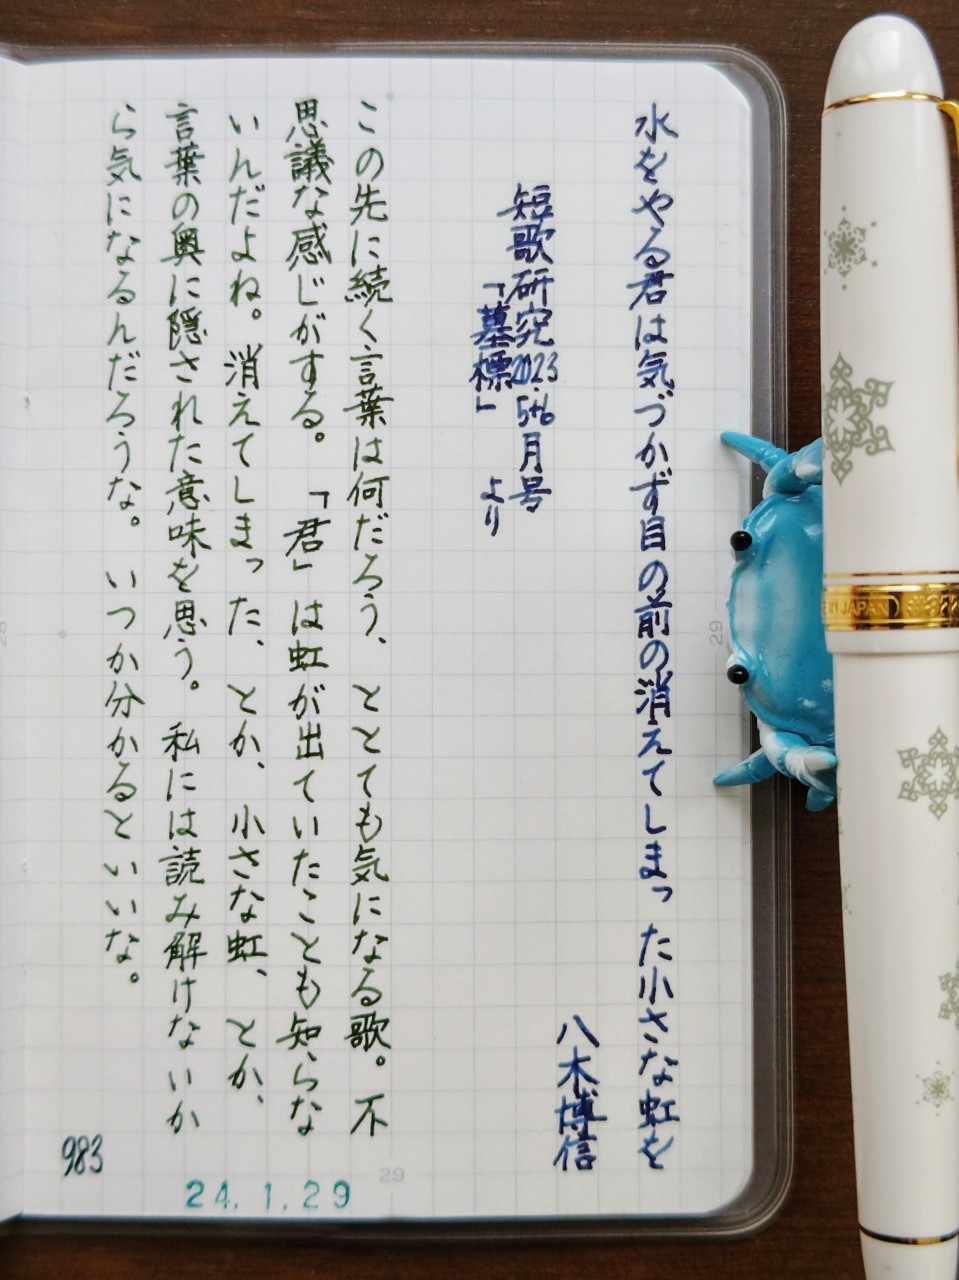 水をやる君は気づかず目の前の消えてしまった小さな虹を
八木博信
短歌研究2023.5+6月号
「墓標」より
この先に続く言葉は何だろう、ととても気になる歌。不
思議な感じがする。「君」は虹が出ていたことも知らな
いんだよね。消えてしまった、とか、小さな虹、とか、
言葉の奥に隠された意味を思う。私には読み解けないか
ら気になるんだろうな。いつか分かるといいな。
983
24.1.29
29
29
JAPAN